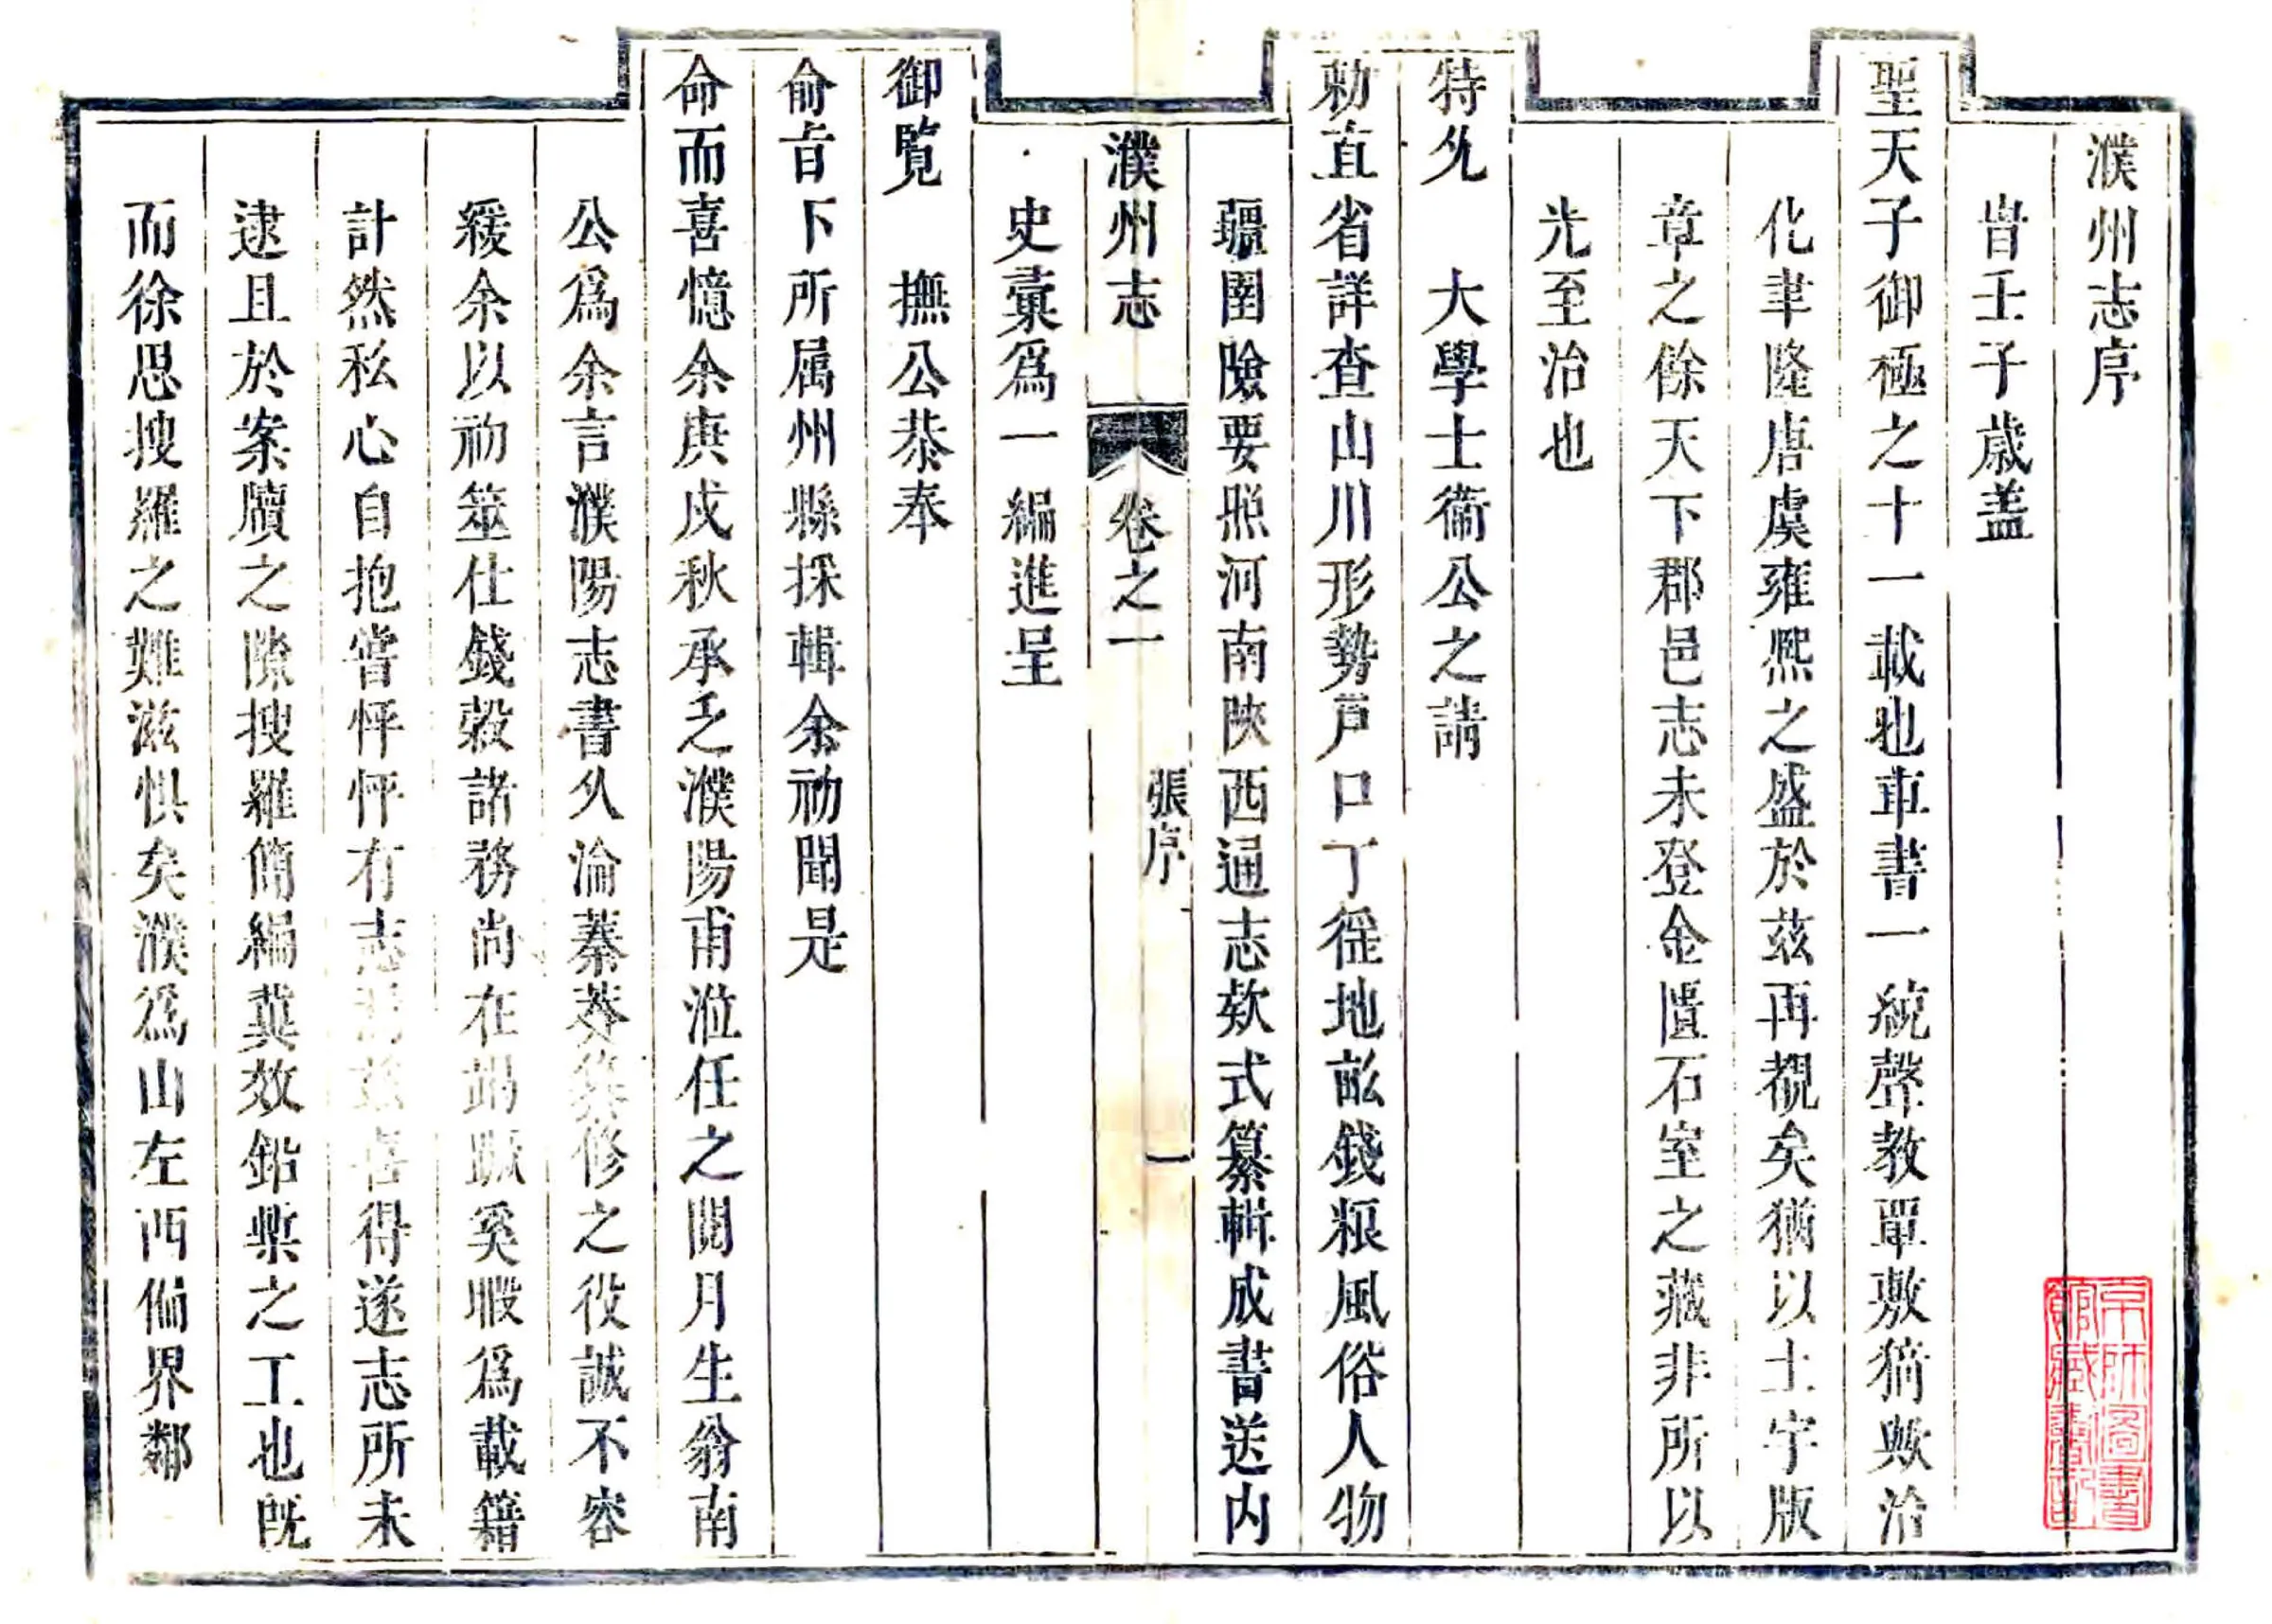 濮州志序
旹壬子歲盖
聖天子御極之十一載也車書一統聲教覃敷猗歟治
化聿隆唐虞雍熙之盛於茲再覩矣猶以土宇版
章之餘天下郡邑志未登金匱石室之藏非所以
光至治也
特允　大學士衞公之請
勅直省詳查山川形勢戶口丁徭地畝錢粮風俗人物
疆圉險要照河南陝西通志欵式纂輯成書送内
濮州志　卷之一　張序　一
史彙爲一編進呈
御覧　撫公恭奉
俞旨下所属州縣採輯余初聞是
命而喜憶余庚戌秋承乏濮陽甫涖任之閱月生翁南
公爲余言濮陽志書久淪蓁莽纂修之役誠不容
緩余以初筮仕錢穀諸務尚在竭蹶奚暇爲載籍
計然私心自抱嘗怦怦有志焉茲喜得遂志所未
逮且於案牘之隙搜羅簡編冀效鉛槧之工也旣
而徐思搜羅之難滋惧矣濮爲山左西偏界鄰
京師圖書
館藏書印